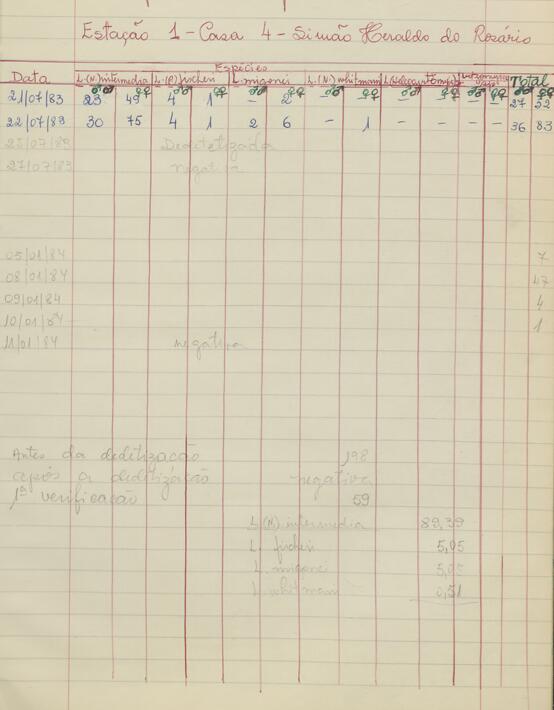 Estação 1 - Casa 4 - Simão Heraldo do Rosário
Espécies
Data L.(N.) intermedia L.(P.) fischeri L. migonei L.(N.) whitmani Total
♂♂ ♀♀ ♂♂ ♀♀ ♂♂ ♀♀ ♂♂ ♀♀ ♂♂ ♀♀ ♂♂ ♀♀ ♂♂ ♀♀
21/07/83 23 49 4 1 - 2 - - - - - - 27 52
22/07/83 30 75 4 1 2 6 - 1 - - - - 36 83
Dedetizada
27/07/83 negativa
05/01/84 7
08/01/84 47
09/01/84 4
10/01/84 1
11/01/84 negativa
Antes da dedetização 198
após a dedetização negativa
1ª verificação 59
L.(N) intermedia 89,39
L. fischeri 5,05
L. migonei 5,05
L. whitmani 0,51